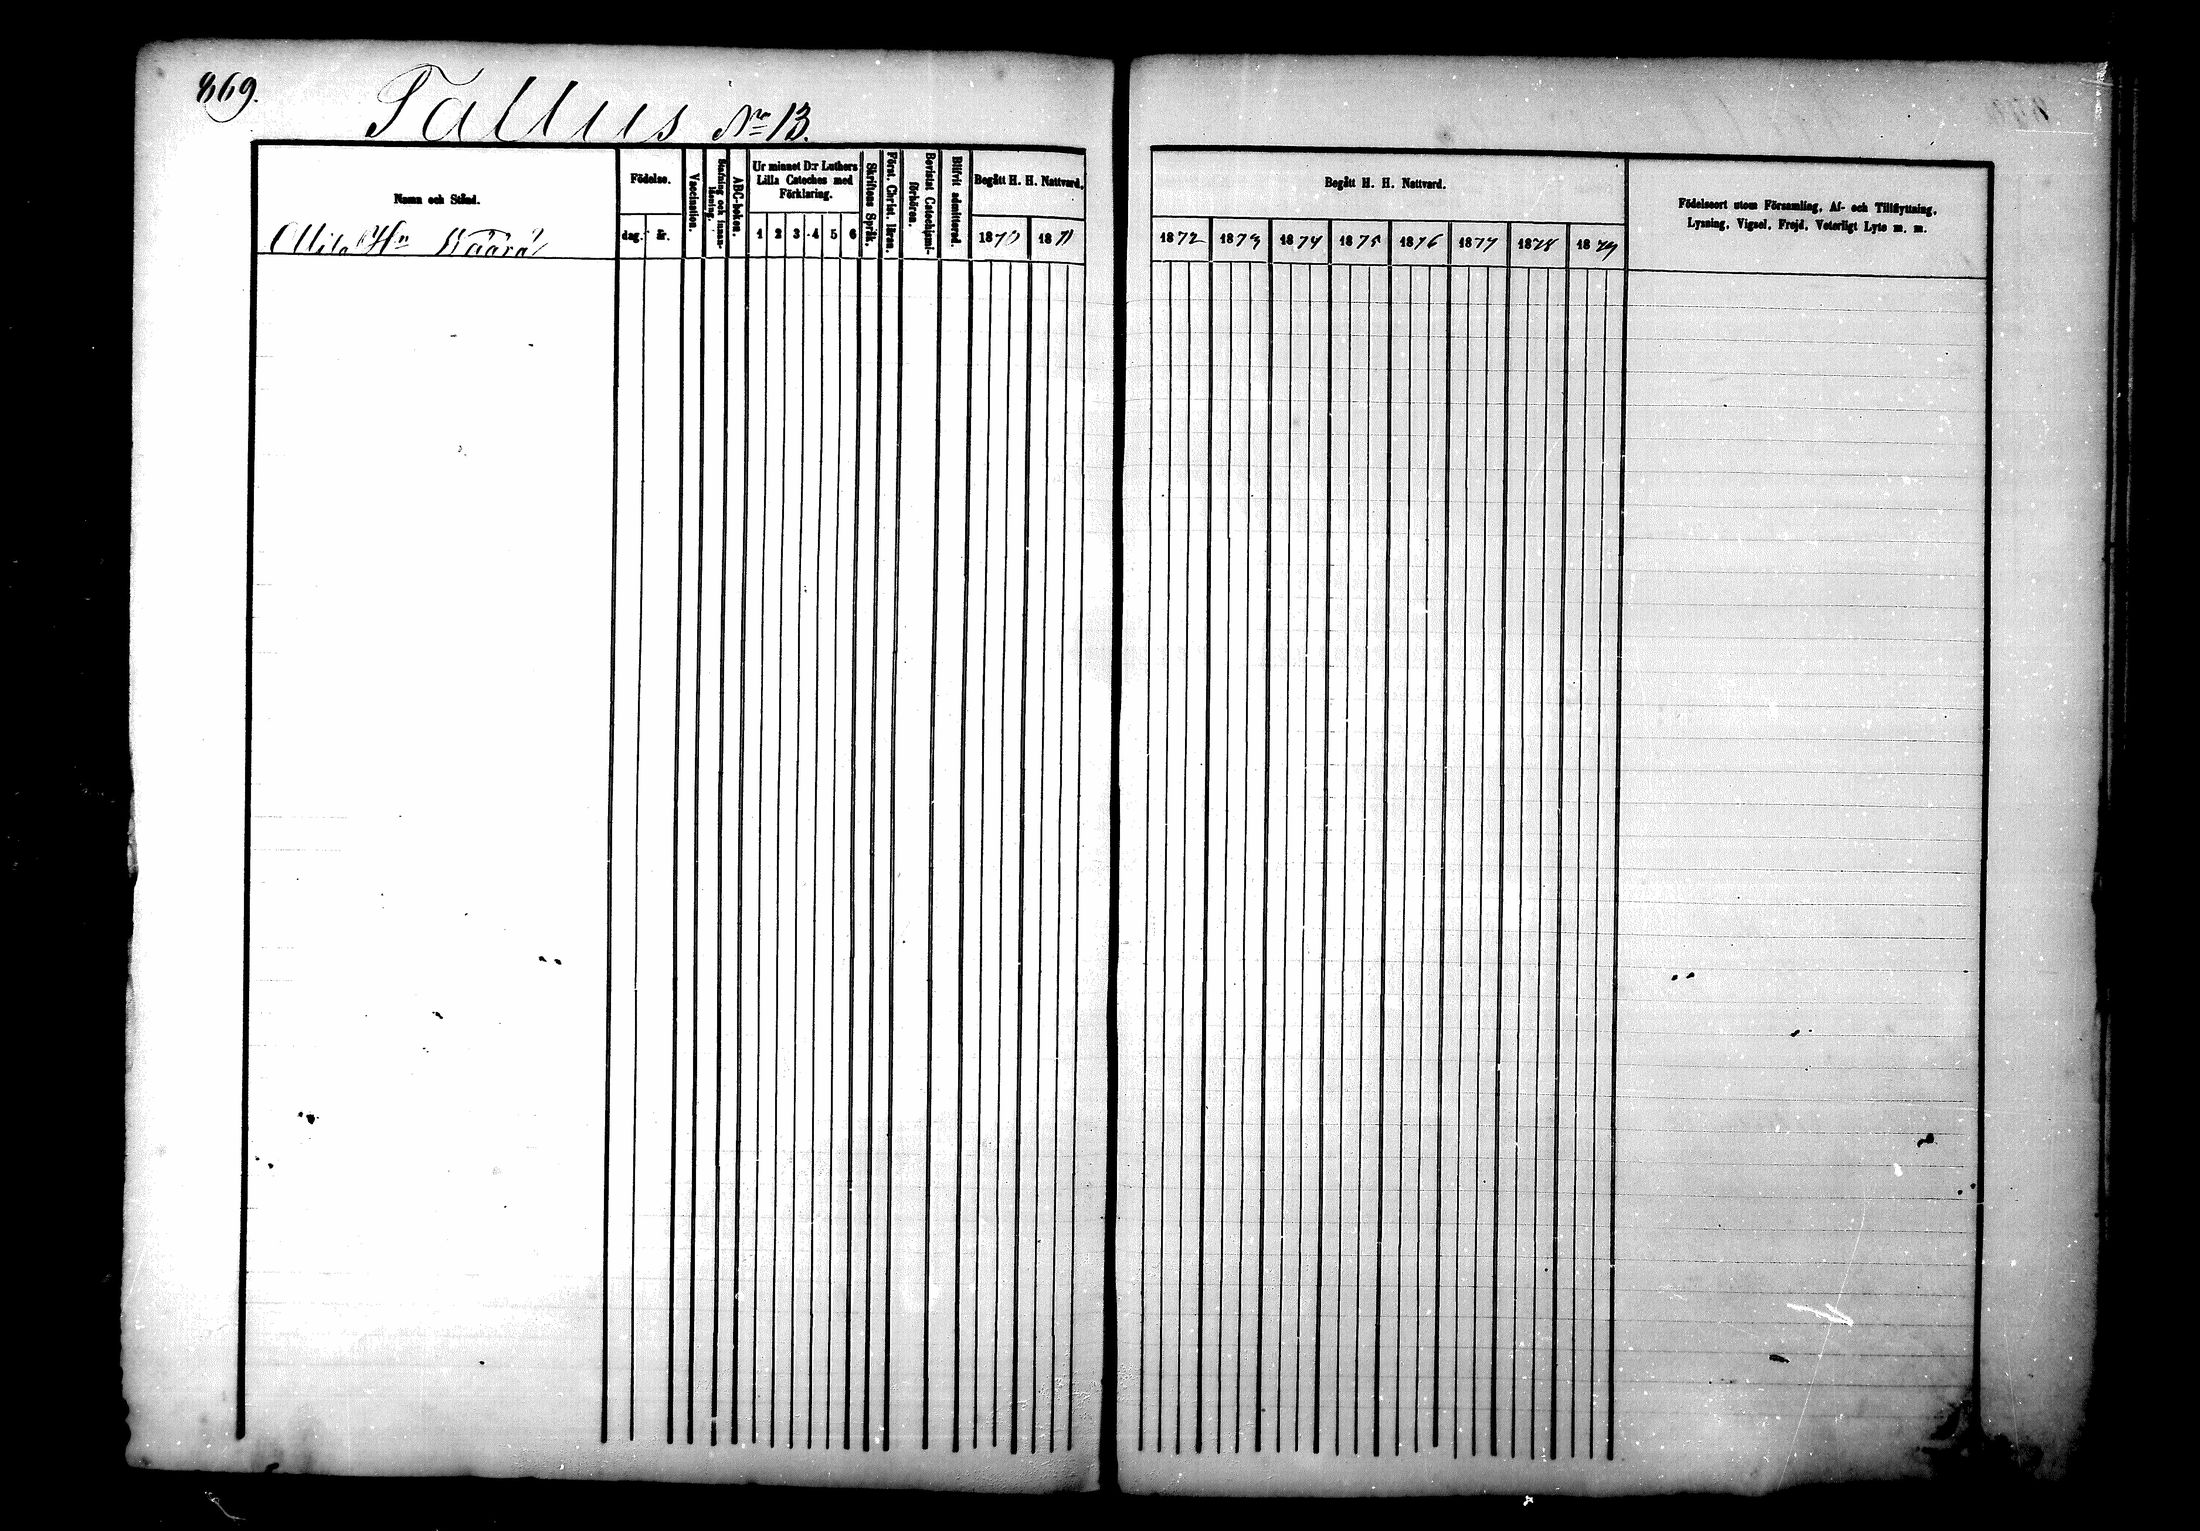 869.
Tallus No 13.
Namn och Stånd.
Födelse.
dag. år.
Vaccination.
Stafning och innan-läsning.
ABC-boken.
Ur minnet D:r Luthers
Lilla Cateches med
Förklaring.
1 2 3 4 5 6
Skriftens Språk.
Först. Christ. läran.
Bevistat Catechismi-förhören.
Blifvit admitterad.
Begått H. H. Nattvard.
1870 1871
Begått H. H. Nattvard.
1872 1873 1874 1875 1876 1877 1878 1879
Födelseort utom Församling, Af- och Tillflyttning,
Lysning, Vigsel, Frejd, Veterligt Lyte m. m.